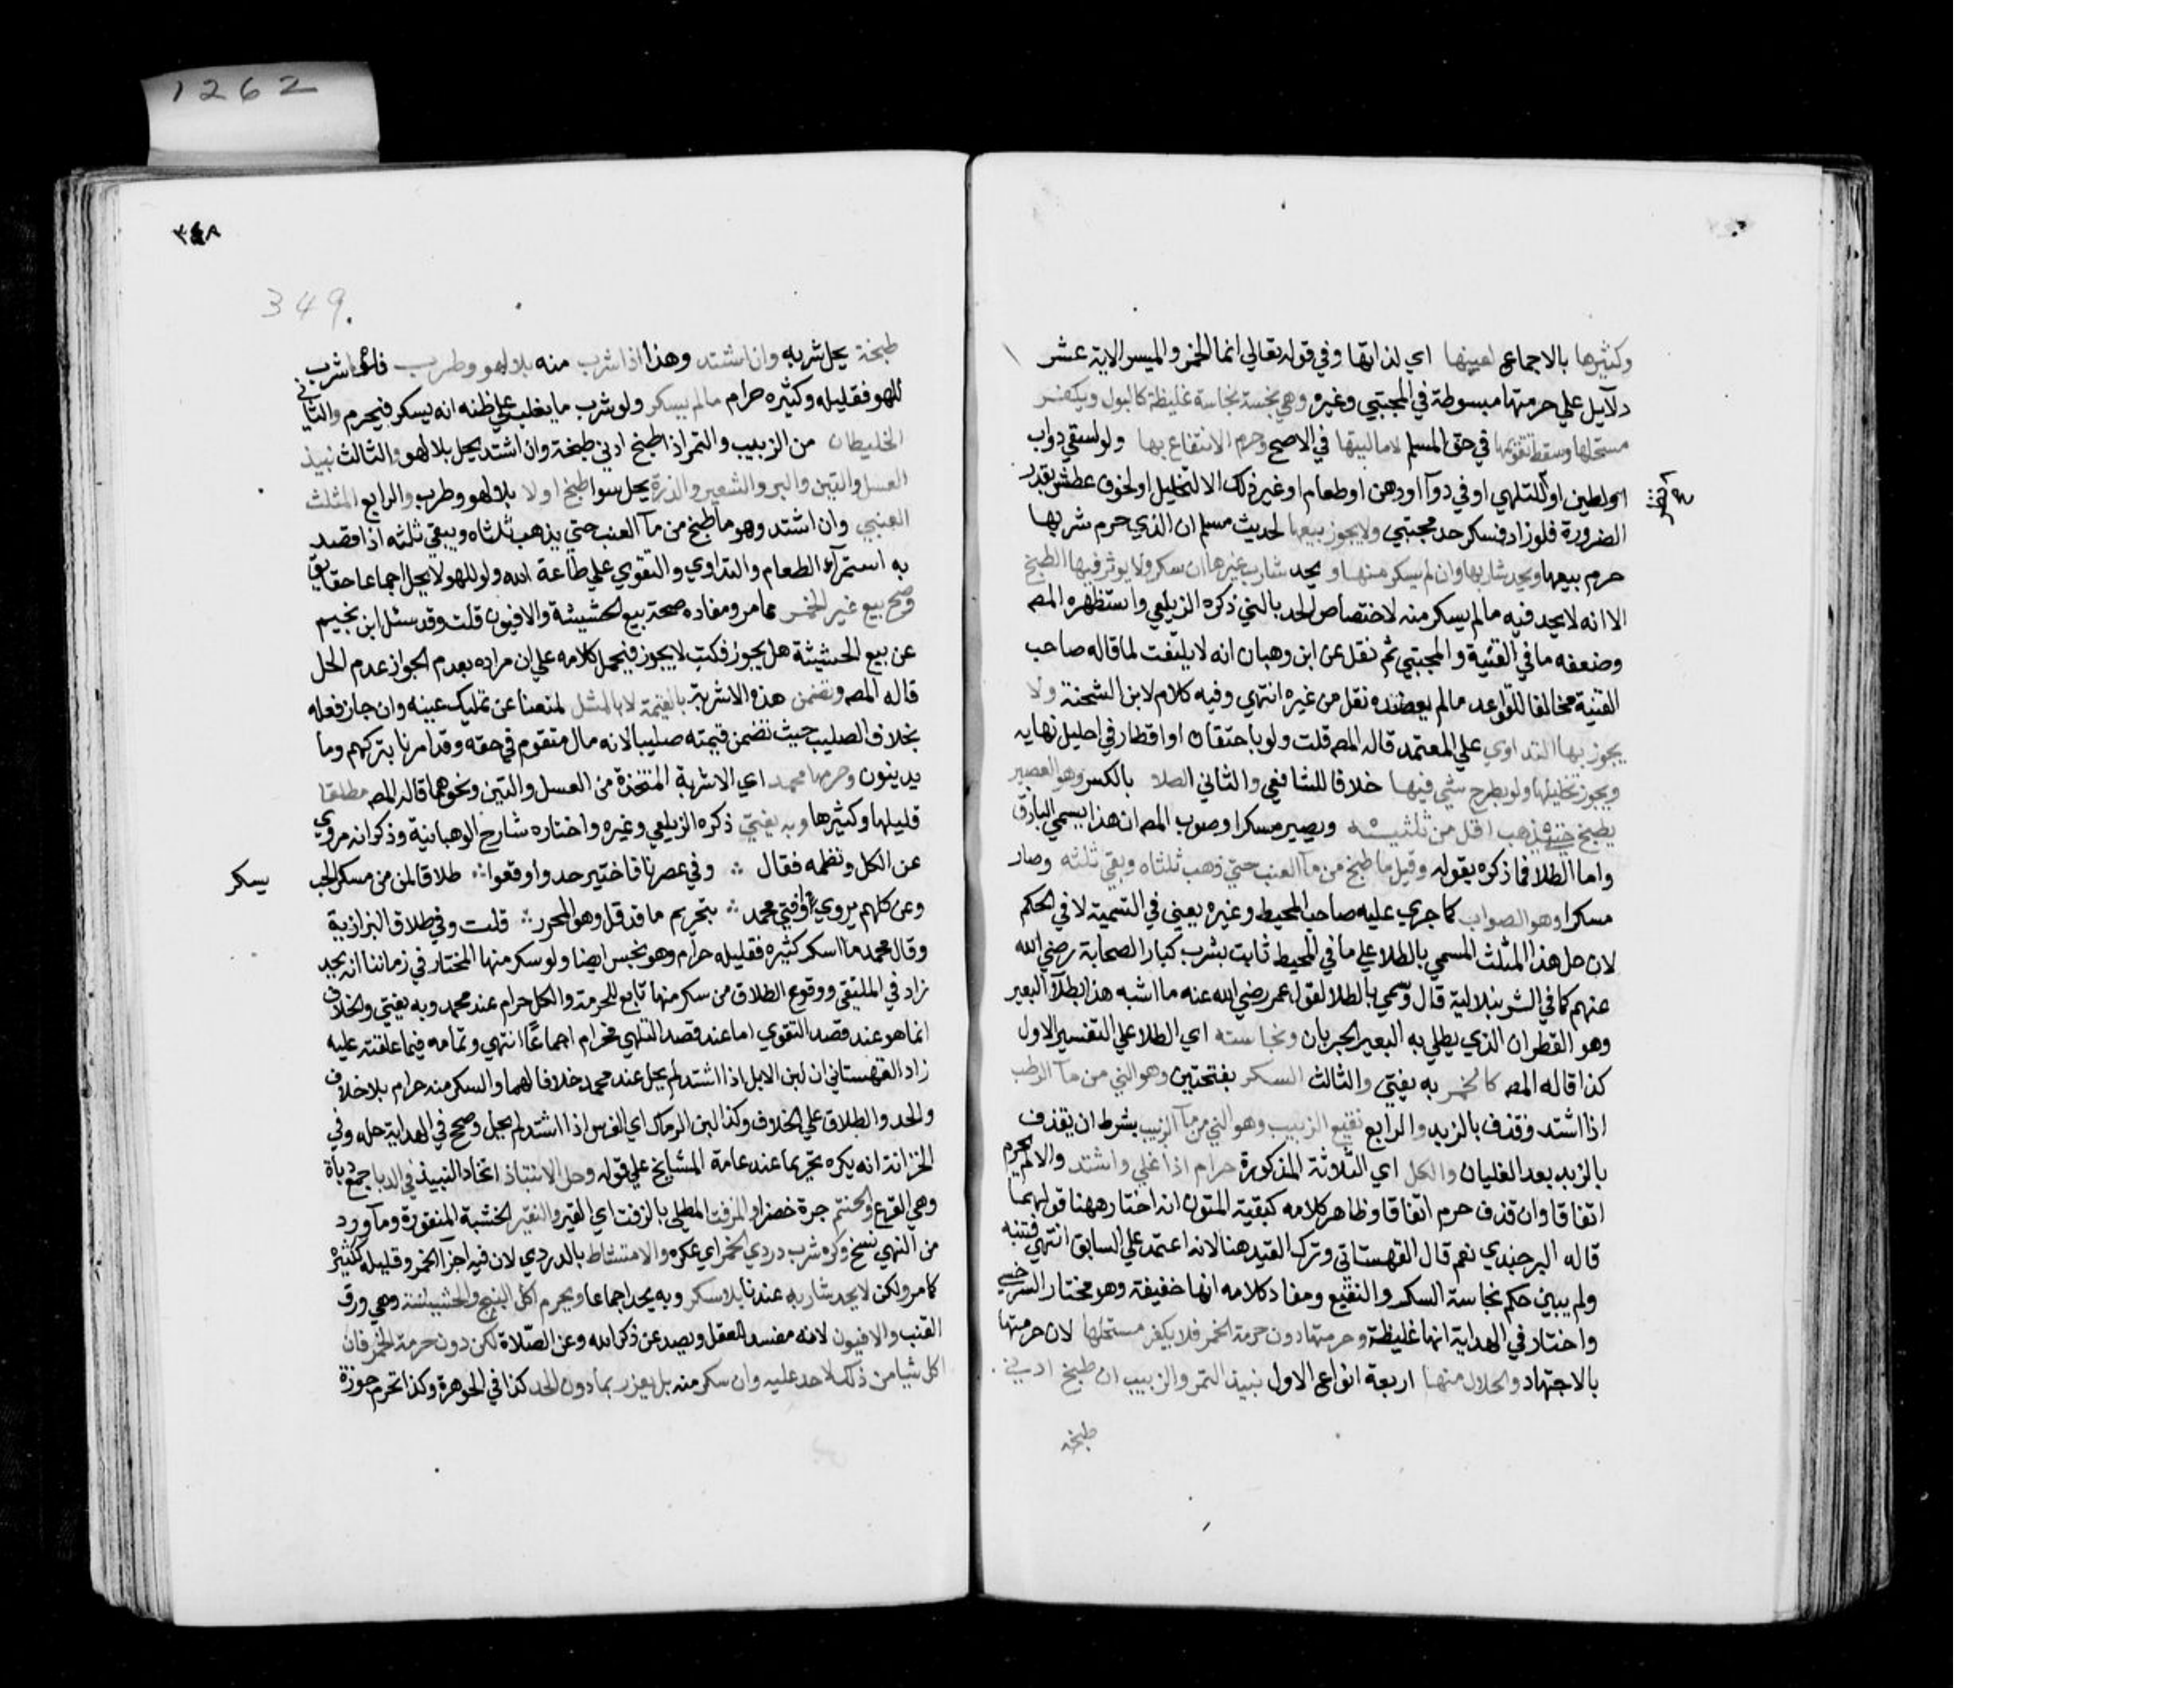 1262
وكثيرها بالاجماع لعينها اي لذاتها وفي قوله تعالي انما الخمر والميسر الاية عشر
دلايل علي حرمتها مبسوطة في المجتبي وغيره وهي نجسة نجاسة غليظة كالبول ويكفر
مستحلها وسقط تقومها في حق المسلم لا ماليتها في الاصح وحرم الانتفاع بها ولو لسقي دواب
اولطين او للتلهي او في دوآ او دهن او طعام او غير ذلك الا لتخليل او لخوف عطش بقدر
الضرورة فلو زاد فسكر حد مجتبي ولا يجوز بيعها لحديث مسلم ان الذي حرم شربها
حرم بيعها ويحد شاربها وان لم يسكر منها و يحد شارب غيرها ان سكر ولا يوثر فيها الطبخ
الا انه لا يحد فيه مالم يسكر منه لاختصاص الحد بالني ذكره الزيلعي واستظهره المصـ
وضعفه ما في القنية والمجتبي ثم نقل عن ابن وهبان انه لا يلتفت لما قاله صاحب
القنية مخالفا للقواعد مالم يعضده نقل من غيره انتهي وفيه كلام لابن الشحنة ولا
يجوز بها التداوي علي المعتمد قاله المصـ قلت ولو باحتقان او اقطار في احليل نهايه
ويجوز تخليلها ولو بطرح شي فيها خلافا للشافعي والثاني الطلا بالكسر وهو العصير
يطبخ حتي يذهب اقل من ثلثيه ويصير مسكرا وصوب المصـ ان هذا يسمي الباذق
واما الطلا فما ذكره بقوله وقيل ما طبخ من مآ العنب حتي ذهب ثلثاه وبقي ثلثه وصار
مسكرا وهو الصواب كما جري عليه صاحب المحيط وغيره يعني في التسمية لا في الحكم
لان حل هذا المثلث المسمي بالطلا علي ما في المحيط ثابت بشرب كبار الصحابة رضي الله
عنهم كما في الشرنبلالية قال وسمي بالطلا لقول عمر رضي الله عنه ما اشبه هذا بطلآ البعير
وهو القطران الذي يطلي به البعير الجربان ونجاسته اي الطلا علي التفسير الاول
كذا قاله المصـ كالخمر به يفتي والثالث السكر بفتحتين وهو الني من مآ الرطب
اذا اشتد وقذف بالزبد والرابع نقيع الزبيب وهو الني من مآ الزبيب بشرط ان يقذف
بالزبد بعد الغليان والكل اي الثلاثة المذكورة حرام اذا غلي واشتد والا لم يحرم
اتفاقا وان قذف حرم اتفاقا وظاهر كلامه كبقية المتون انه اختار ههنا قولهما
قاله البرجندي نعم قال القهستاني وترك القيد هنا لانه اعتمد علي السابق انتهي فتنبه
ولم يبين حكم نجاسة السكر والنقيع ومفاد كلامه انها خفيفة وهو مختار السرخسي
واختار في الهداية انها غليظة وحرمتها دون حرمة الخمر فلا يكفر مستحلها لان حرمتها
بالاجتهاد والحلال منها اربعة انواع الاول نبيذ التمر والزبيب ان طبخ ادني
طبخة
٣٤٨
349
طبخة يحل شربه وان اشتد وهذا اذا شرب منه بلا لهو وطرب فلو شرب
للهو فقليله وكثيره حرام مالم يسكر ولو شرب ما يغلب علي ظنه انه يسكر فيحرم والثاني
الخليطان من الزبيب والتمر اذا طبخ ادني طبخة وان اشتد يحل بلا لهو والثالث نبيذ
العسل والتين والبر والشعير والذرة يحل سوا طبخ اولا بلا لهو وطرب والرابع المثلث
العنبي وان اشتد وهو ما طبخ من مآ العنب حتي يذهب ثلثاه ويبقي ثلثه اذا قصد
به استمرآء الطعام والتداوي والتقوي علي طاعة الله ولو للهو لا يحل اجماعا حقايق
وصح بيع غير الخمر مما مر ومفاده صحة بيع الحشيشة والافيون قلت وقد سئل ابن نجيم
عن بيع الحشيشة هل يجوز فكتب لا يجوز فيحمل كلامه علي ان مراده بعدم الجواز عدم الحل
قاله المصـ وتضمن هذه الاشربة بالقيمة لا بالمثل لمنعنا عن تمليك عينه وان جاز فعله
بخلاف الصليب حيث تضمن قيمته صليبا لانه مال متقوم في حقه وقد امرنا بتركهم وما
يدينون وحرمها محمد اي الاشربة المتخذة من العسل والتين ونحوهما قاله المصـ مطلقا
قليلها وكثيرها وبه يفتي ذكره الزيلعي وغيره واختاره شارح الوهبانية وذكر انه مروي
عن الكل ونظمه فقال ∴ وفي عصرنا فاختير حد وأوقعوا ∴ طلاقا لمن من مسكر الحب يسكر
وعن كلهم يروي وافتي محمد ∴ بتحريم ما قد قل وهو المحرر ∴ قلت وفي طلاق البزازية
وقال محمد ما اسكر كثيره فقليله حرام وهو نجس ايضا ولو سكر منها المختار في زماننا انه يحد
زاد في الملتقي ووقوع الطلاق من سكر منها تابع للحرمة والكل حرام عند محمد وبه يفتي والخلاف
انما هو عند قصد التقوي اما عند قصد التلهي فحرام اجماعا انتهي وتمامه فيما علقته عليه
زاد القهستاني ان لبن الابل اذا اشتد لم يحل عند محمد خلافا لهما والسكر منه حرام بلا خلاف
والحد والطلاق علي الخلاف وكذا لبن الرماك اي الفرس اذا اشتد لم يحل وصح في الهداية حله وفي
الخزانة انه يكره تحريما عند عامة المشايخ علي قوله وحل الانتباذ اتخاذ النبيذ في الدبا جمع دباة
وهي القرع والحنتم جرة خضرا والمزفت المطلي بالزفت اي القير والنقير الخشبة المنقورة وما ورد
من النهي نسخ وكره شرب دردي الخمر اي عكره والامتشاط بالدردي لان فيه اجزآ الخمر وقليله ككثيره
كما مر ولكن لا يحد شاربه عندنا بلا سكر وبه يحد اجماعا ويحرم اكل البنج والحشيشة وهي ورق
القنب والافيون لانه مفسد للعقل ويصد عن ذكر الله وعن الصلاة لكن دون حرمة الخمر فان
اكل شيا من ذلك لا حد عليه وان سكر منه بل يعزر بما دون الحد كذا في الجوهرة وكذا تحرم جوزة